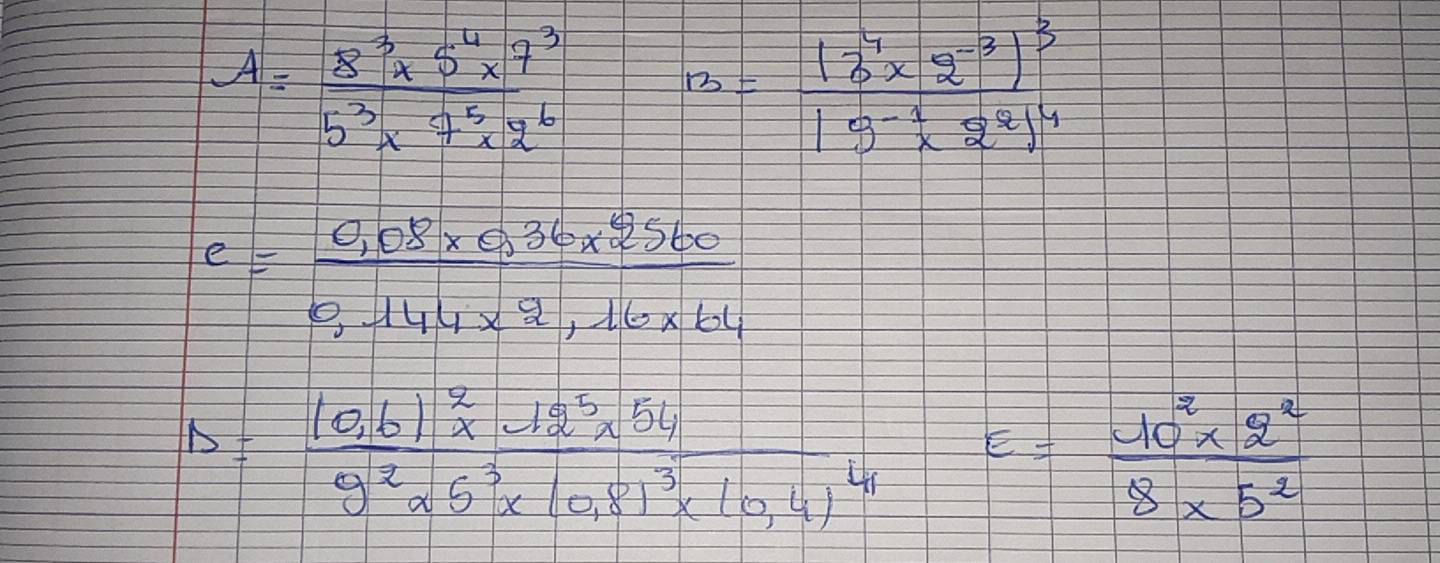 A = (8³ × 5⁴ × 7³) / (5³ × 7⁵ × 2⁶)    B = (3⁴ × 2⁻³)³ / (9⁻¹ × 2²)⁴
C = (0,08 × 0,36 × 2560) / (0,144 × 2,16 × 64)
D = ((0,6)² × 12⁵ × 54) / (9² × 5³ × (0,8)³ × (0,4)⁴)    E = (10² × 2²) / (8 × 5²)